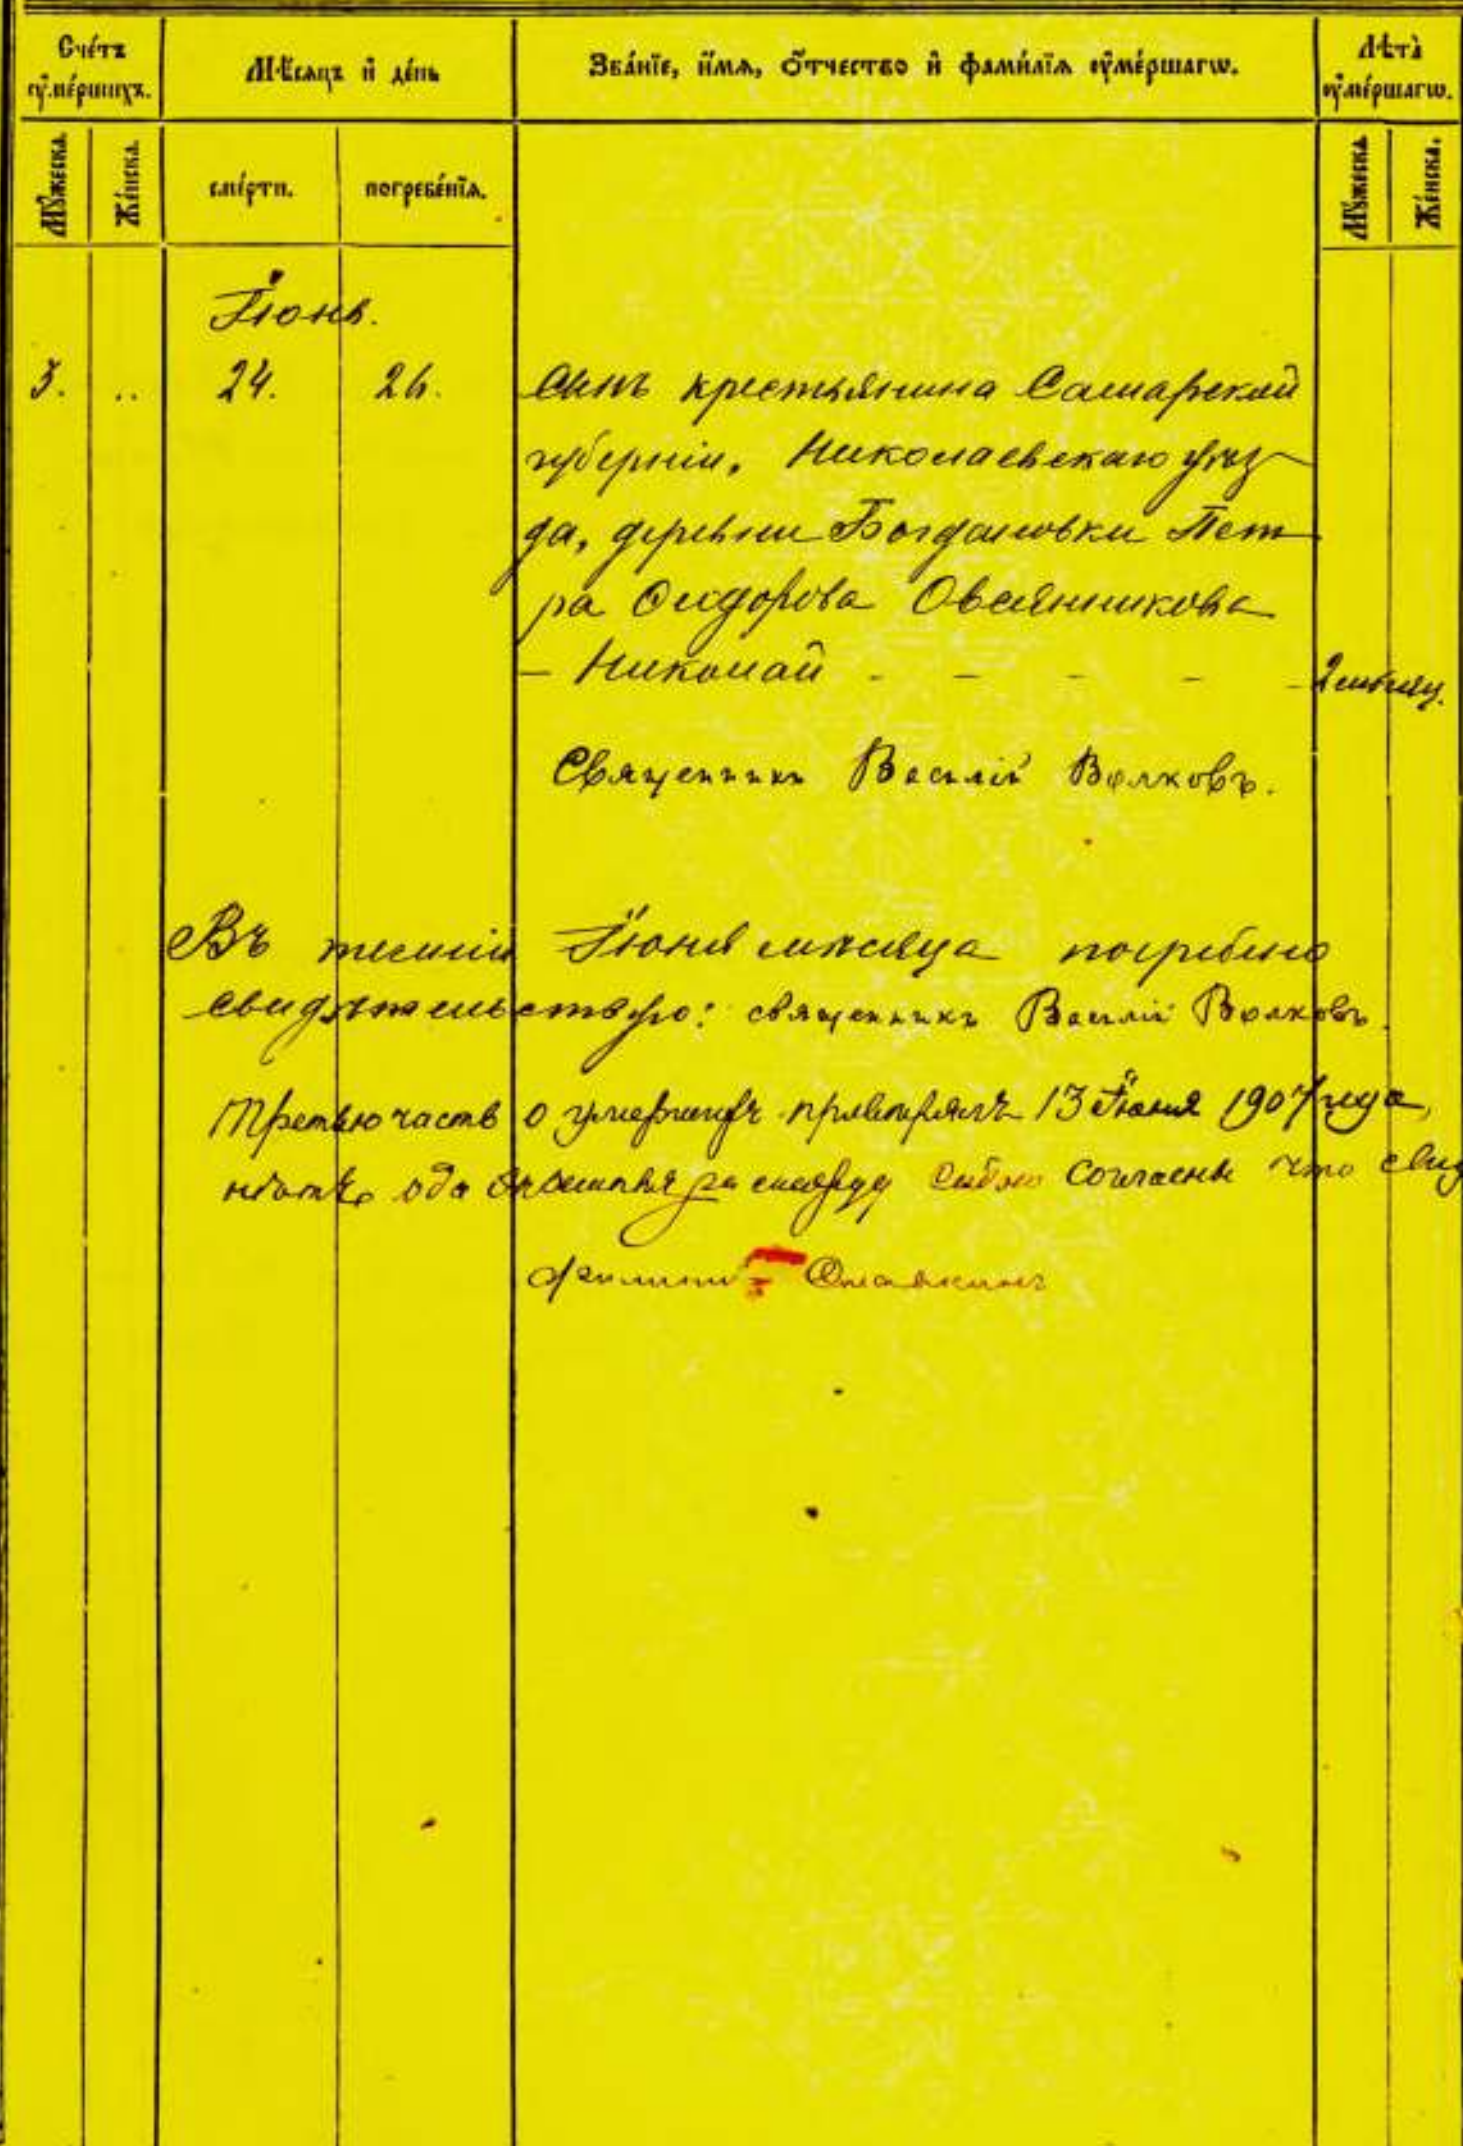 Сче́тъ ᲂу҆ме́ршихъ.
Мѣ́сяцъ и҆ де́нь
Зва́нїе, и҆́мѧ, ѻ҆́тчество и҆ фами́лїѧ ᲂу҆ме́ршагѡ.
Лѣта̀ ᲂу҆ме́ршагѡ.
Мꙋ́жеска.
Же́нска.
сме́рти.
погребе́нїѧ.
Мꙋ́жеска.
Же́нска.
Іюнь.
3. .. 24. 26. Сынъ крестьянина Самарской
губерніи, Николаевскаго уѣз-
да, деревни Богдановки Пет-
ра Сидорова Овсянникова
– Николай - - - - 2 мѣсяц.
Священникъ Василій Волковъ.
Въ теченіи Іюня мѣсяца погребено
свидѣтельствую: священникъ Василій Волковъ.
Третью часть о умершихъ 13 Іюня 1907 года
согласны что